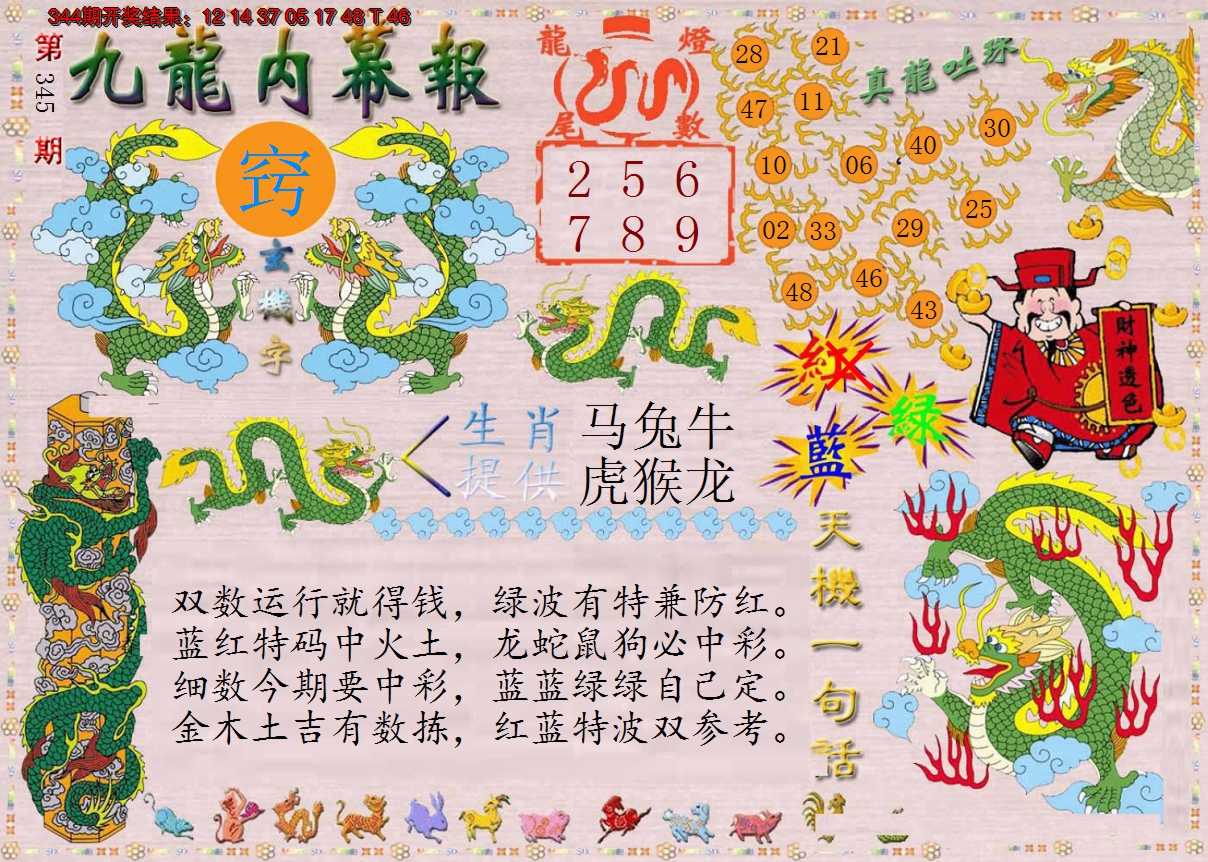 344期开奖结果：12 14 37 05 17 48 T 46
第345期
九龍内幕報
窍
玄機字
龍燈
尾數
2 5 6
7 8 9
真龍吐珠
28 21
47 11
40 30
10 06
25
02 33 29
48 46
43
財神透色
紅
绿
藍
生肖 马兔牛
提供 虎猴龙
天機一句话
双数运行就得钱，绿波有特兼防红。
蓝红特码中火土，龙蛇鼠狗必中彩。
细数今期要中彩，蓝蓝绿绿自己定。
金木土吉有数拣，红蓝特波双参考。